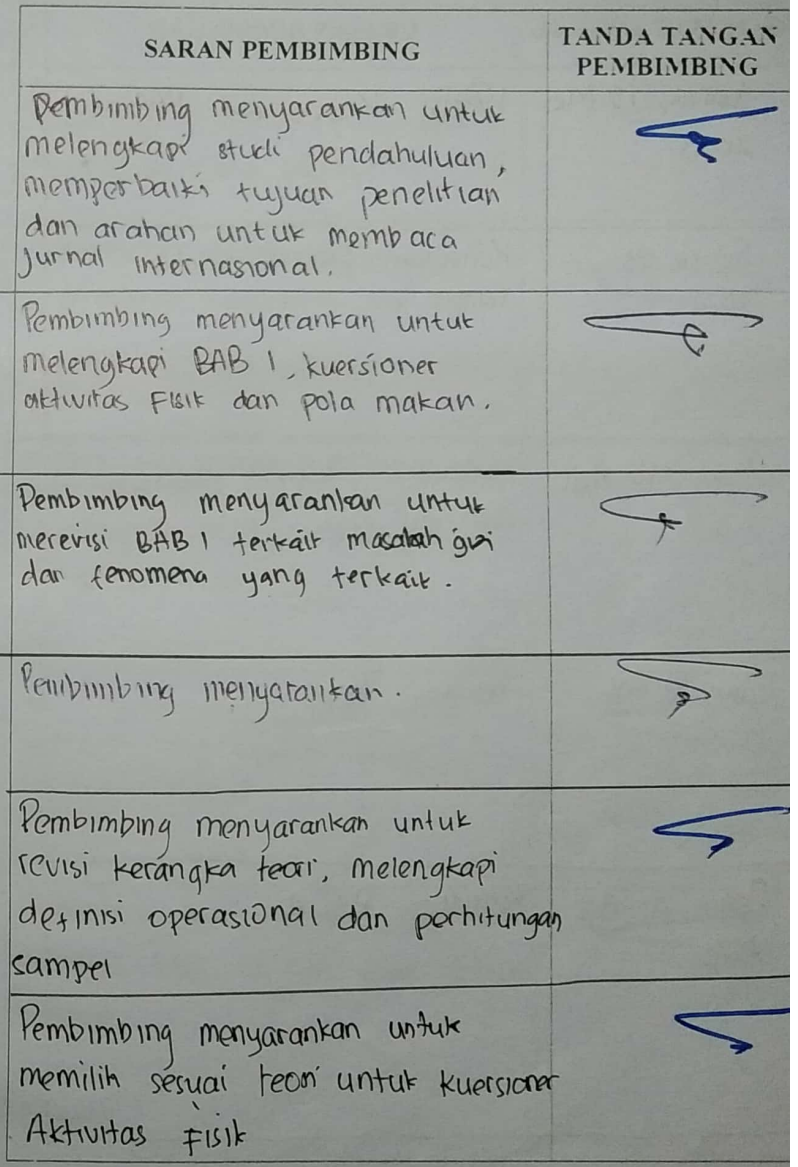 SARAN PEMBIMBING
TANDA TANGAN
PEMBIMBING
Pembimbing menyarankan untuk
melengkapi studi pendahuluan,
memperbaiki tujuan penelitian
dan arahan untuk membaca
jurnal internasional.
Pembimbing menyarankan untuk
melengkapi BAB 1, kuersioner
aktivitas Fisik dan pola makan.
Pembimbing menyarankan untuk
merevisi BAB 1 terkait masalah gizi
dan fenomena yang terkait.
Pembimbing menyarankan.
Pembimbing menyarankan untuk
revisi kerangka teori, melengkapi
definisi operasional dan perhitungan
sampel
Pembimbing menyarankan untuk
memilih sesuai teori untuk kuersioner
Aktivitas Fisik